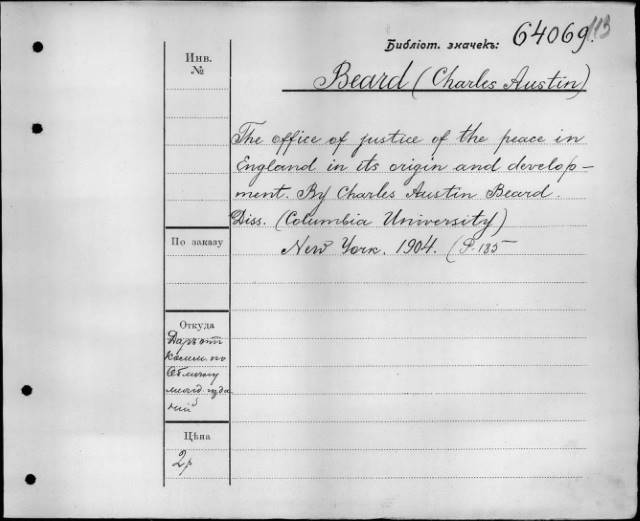 Библіот. значекъ: 64069.
Инв.
№
Beard (Charles Austin)
The office of justice of the peace in
England in its origin and develop-
ment. By Charles Austin Beard.
Diss. (Columbia University)
New York. 1904. (P. 185
По заказу
Откуда
Даръ отъ
по
Обмѣну
изда
ній
Цѣна
2р